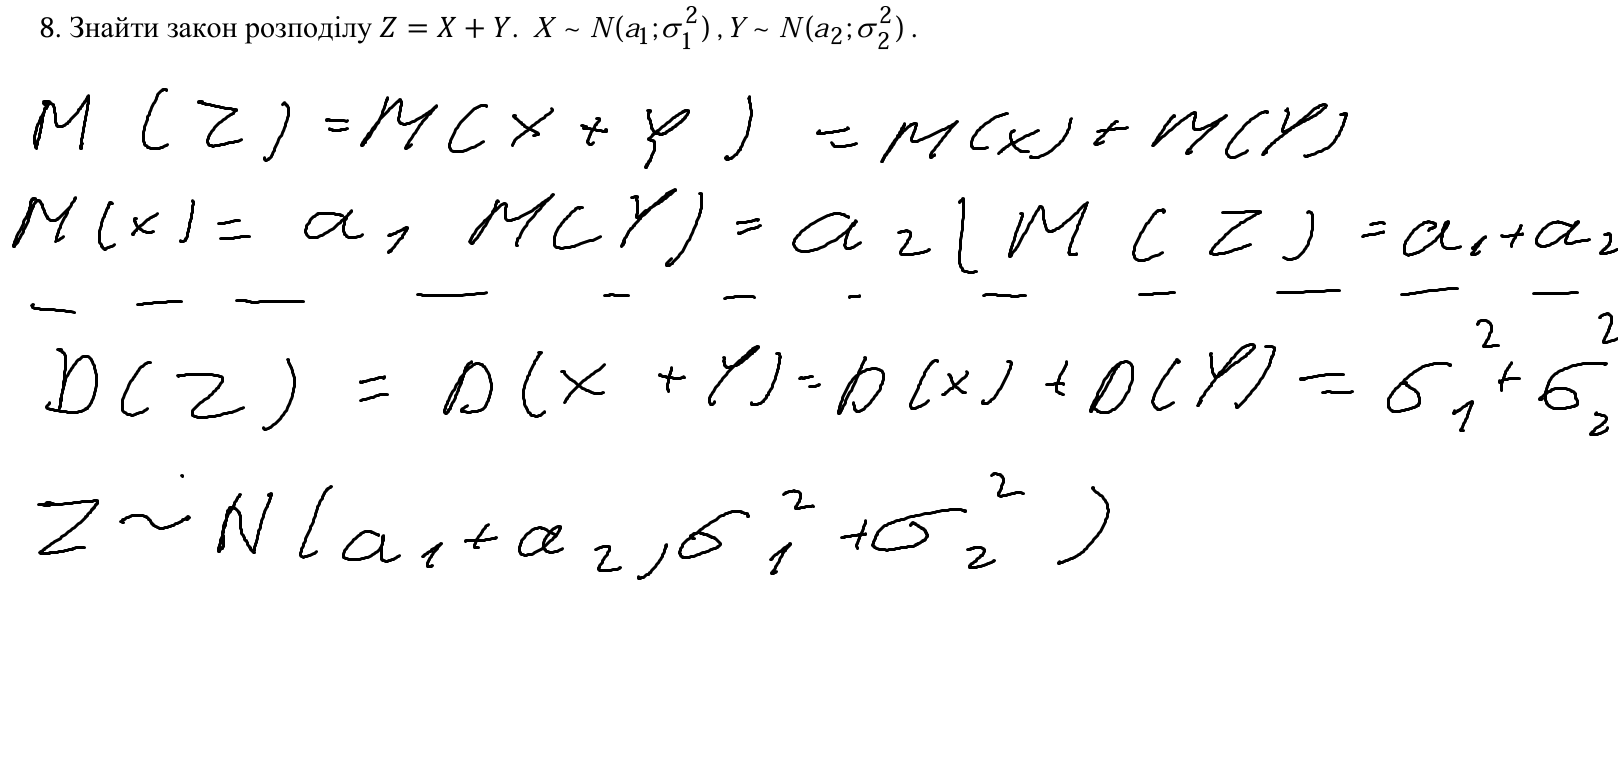 8. Знайти закон розподілу Z = X + Y. X ~ N(a₁; σ₁²), Y ~ N(a₂; σ₂²).
M(Z) = M(X + Y) = M(X) + M(Y)
M(X) = a₁ M(Y) = a₂ | M(Z) = a₁ + a₂
D(Z) = D(X + Y) = D(X) + D(Y) = σ₁² + σ₂²
Z ~ N(a₁ + a₂, σ₁² + σ₂²)